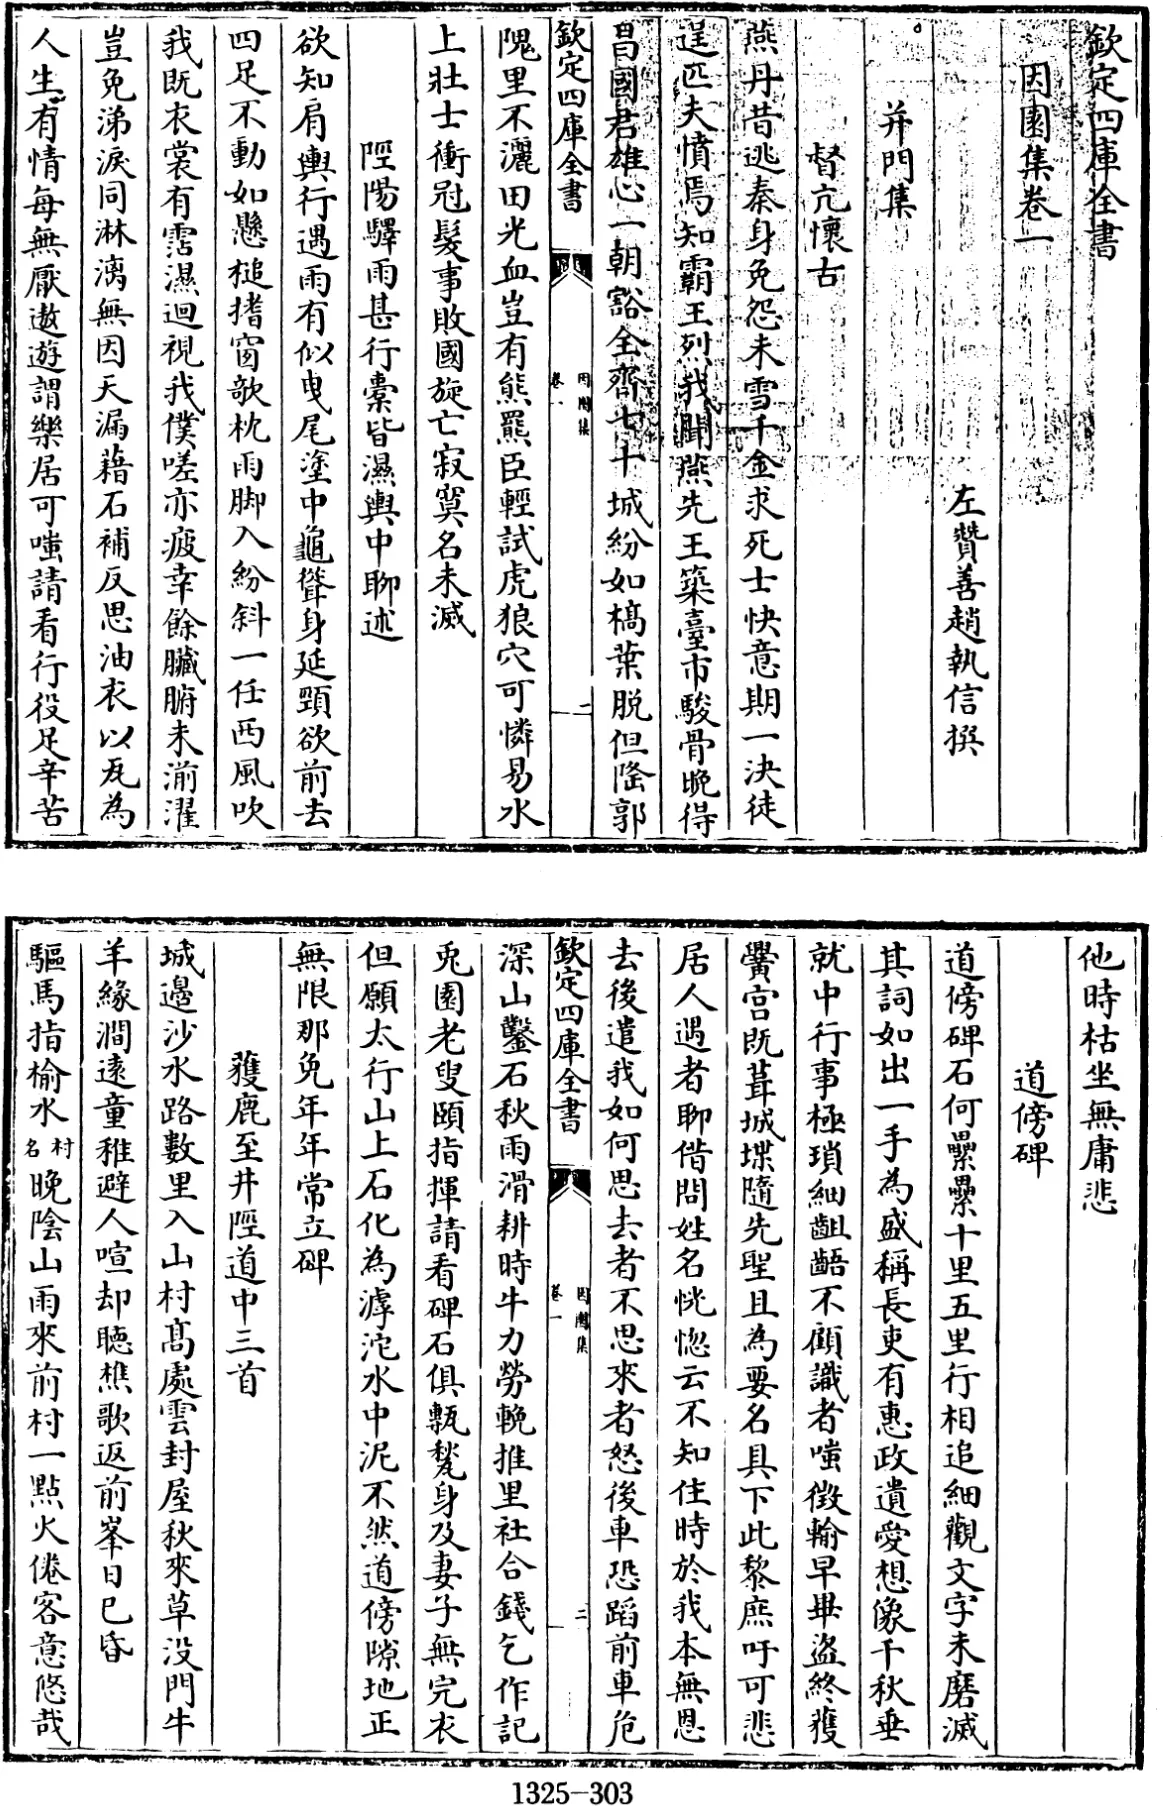 欽定四庫全書
因園集卷一
左贊善趙執信撰
并門集
督亢懷古
燕丹昔逃秦身免怨未雪千金求死士快意期一決徒
逞匹夫憤焉知霸王烈我聞燕先王築臺市駿骨晚得
昌國君雄心一朝豁全齊七十城紛如槁葉脱但陰郭
欽定四庫全書
因園集
卷一
二
隗里不灑田光血豈有熊羆臣輕試虎狼穴可憐易水
上壯士衝冠髮事敗國旋亡寂寞名未滅
陘陽驛雨甚行橐皆濕輿中聊述
欲知肩輿行遇雨有似曵尾塗中龜聳身延頸欲前去
四足不動如懸槌揩窗欹枕雨脚入紛斜一任西風吹
我既衣裳有霑濕迴視我僕嗟亦疲幸餘臟腑未湔濯
豈免涕淚同淋漓無因天漏藉石補反思油衣以瓦為
人生有情每無厭遨遊謂樂居可嗤請看行役足辛苦
他時枯坐無庸悲
道傍碑
道傍碑石何纍纍十里五里行相追細觀文字未磨滅
其詞如出一手為盛稱長吏有惠政遺愛想像千秋垂
就中行事極瑣細齟齬不顧識者嗤徴輸早畢盜終獲
黌宮既葺城堞隨先聖且為要名具下此黎庶吁可悲
居人遇者聊借問姓名恍惚云不知住時於我本無恩
去後遣我如何思去者不思來者怒後車恐蹈前車危
欽定四庫全書
因園集
卷一
三
深山鑿石秋雨滑耕時牛力勞輓推里社合錢乞作記
兎園老叟頤指揮請看碑石俱甎甃身及妻子無完衣
但願太行山上石化為滹沱水中泥不然道傍隙地正
無限那免年年常立碑
獲鹿至井陘道中三首
城邉沙水路數里入山村髙處雲封屋秋來草没門牛
羊緣澗遠童稚避人喧却聴樵歌返前峯日已昏
驅馬指榆水村名晚陰山雨來前村一點火倦客意悠哉
1325-303